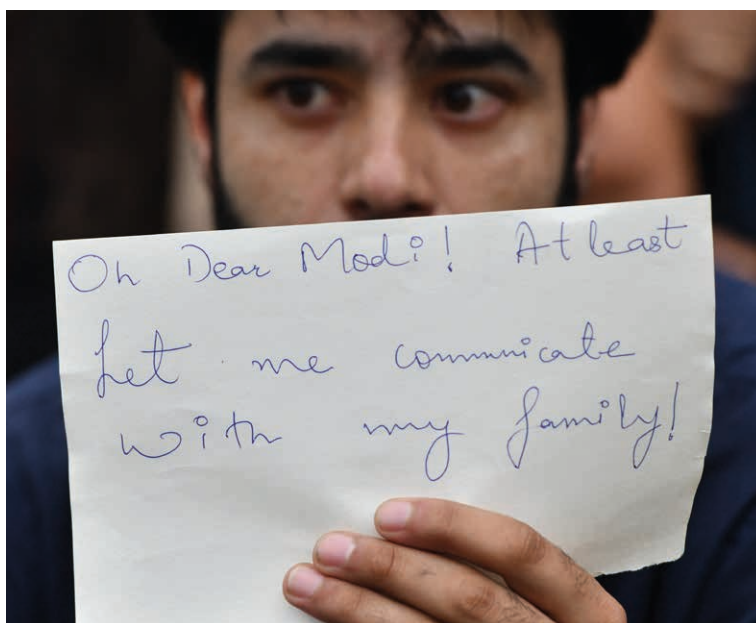 Oh Dear Modi! At least
Let me communicate
with my family!